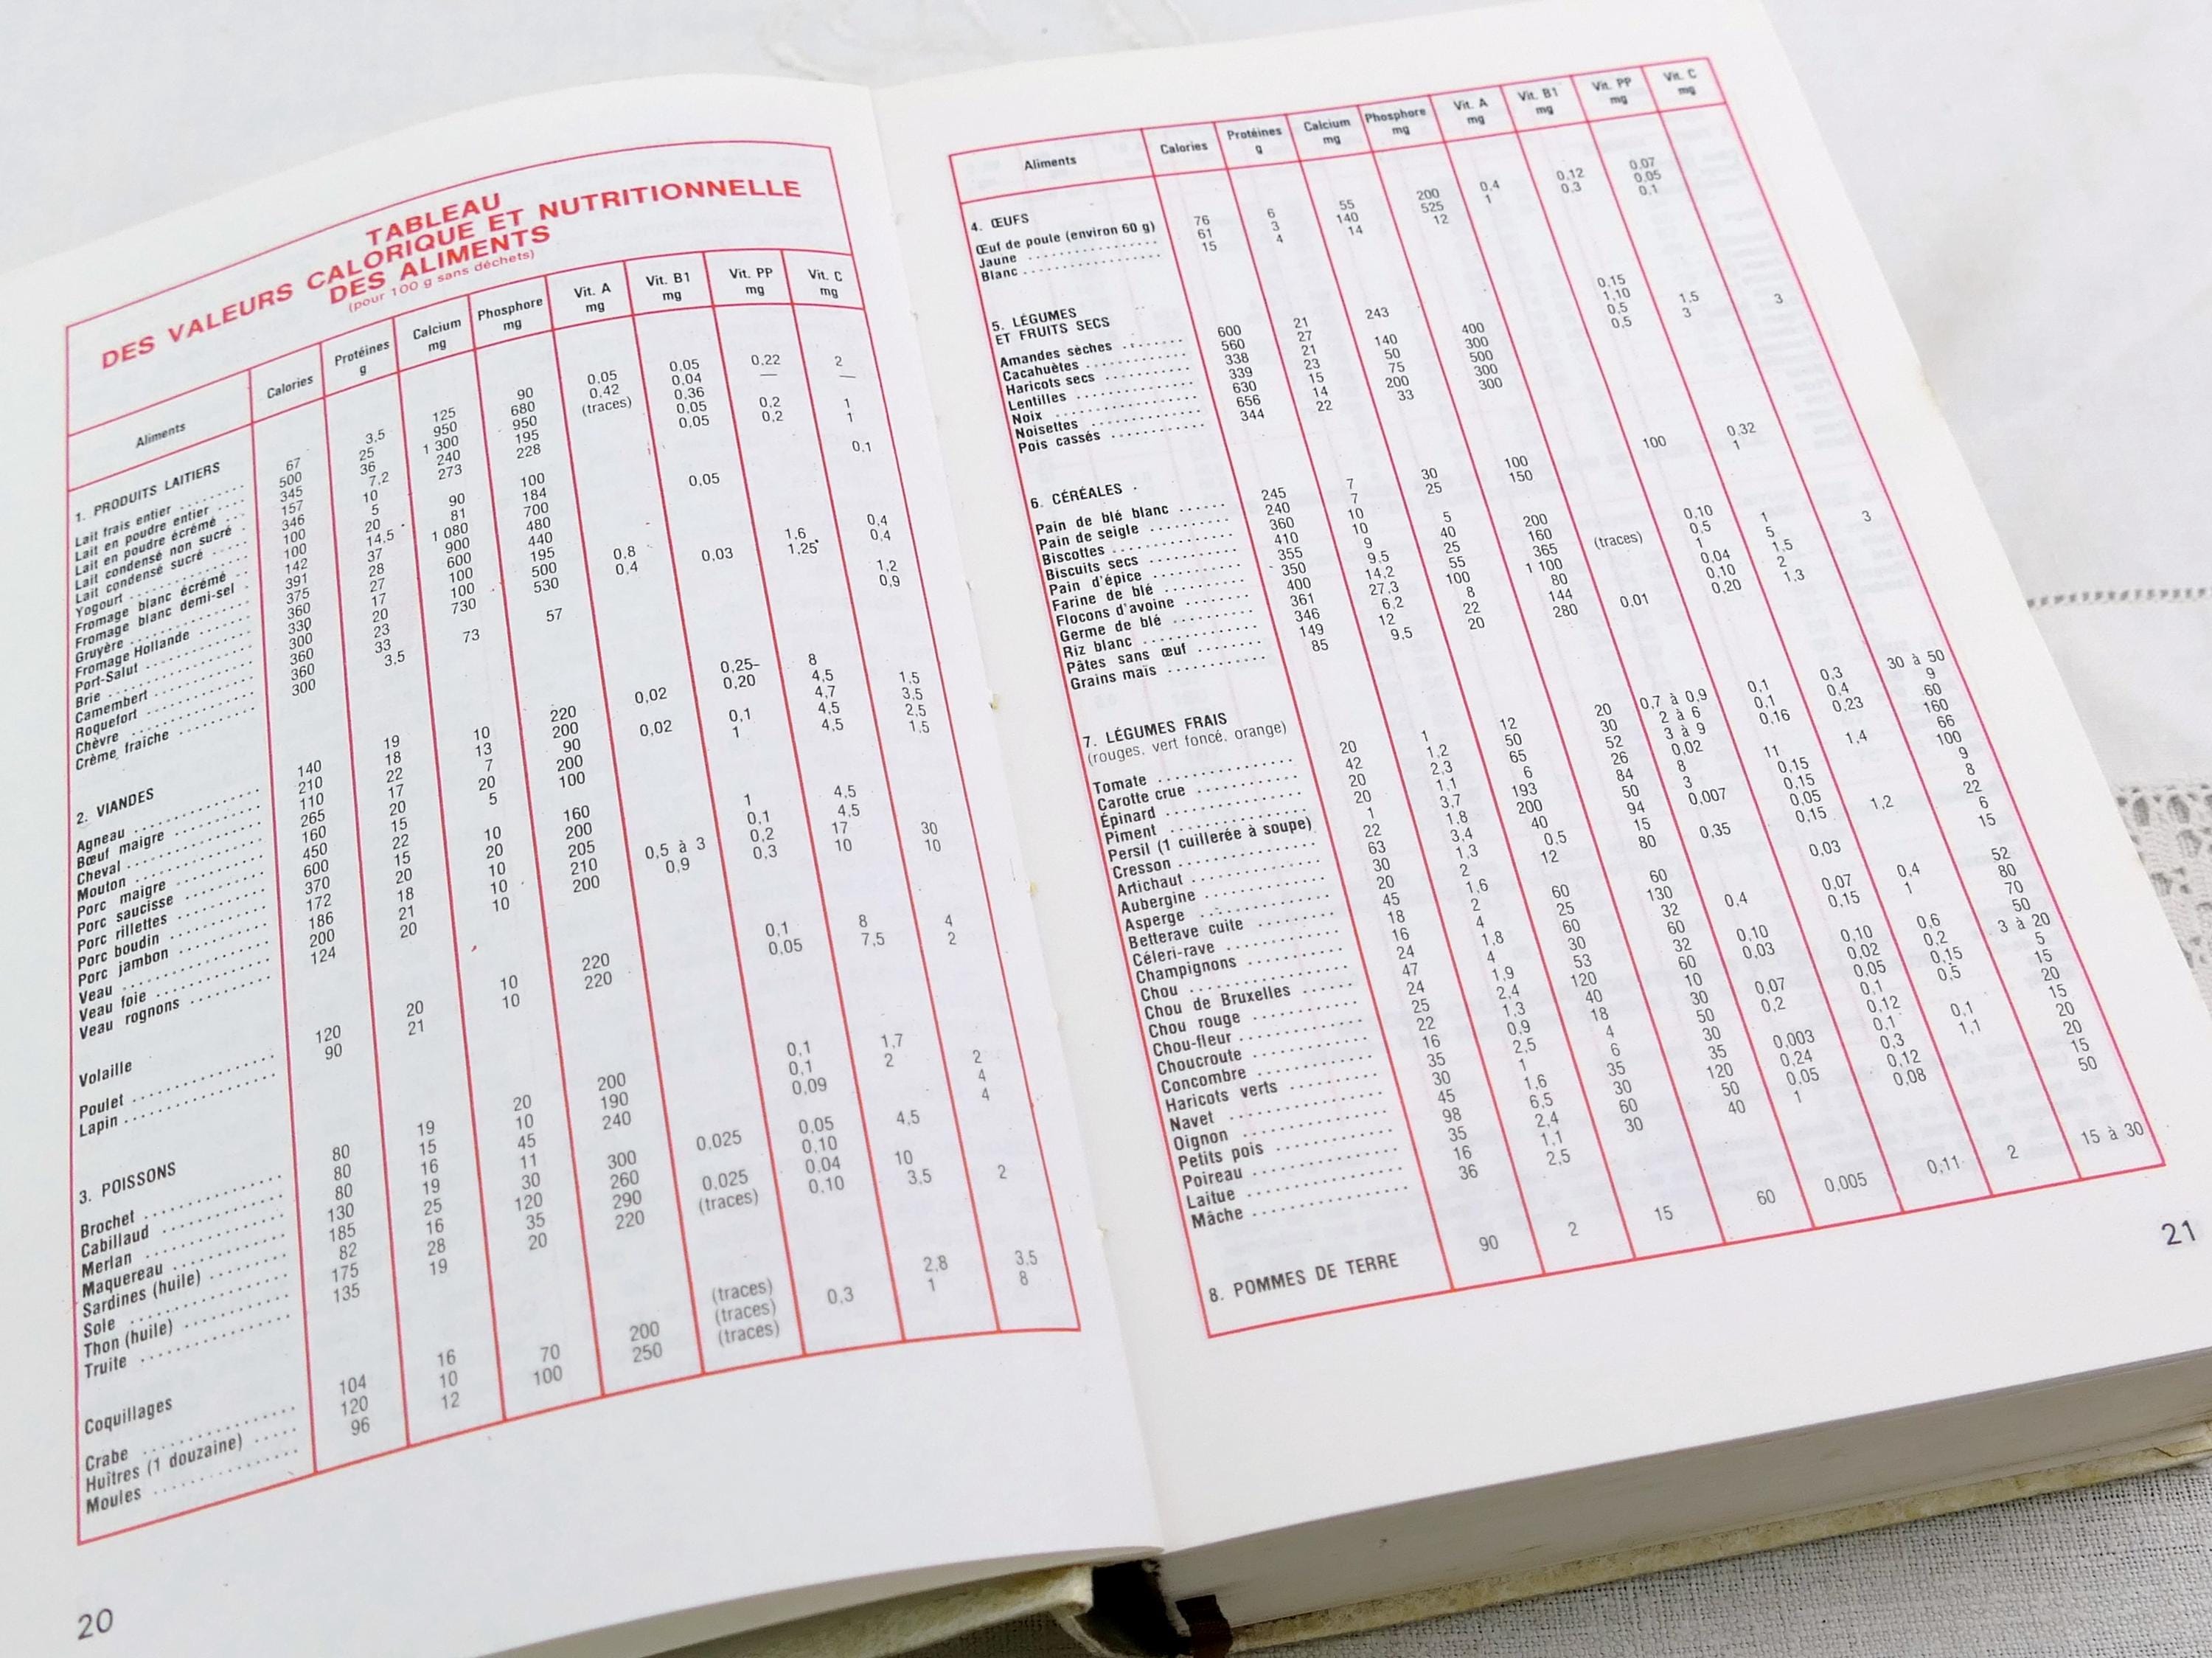 TABLEAU
DES VALEURS CALORIQUE ET NUTRITIONNELLE
DES ALIMENTS
(pour 100 g sans déchets)
Aliments Calories Protéines g Calcium mg Phosphore mg Vit. A mg Vit. B1 mg Vit. PP mg Vit. C mg
1. PRODUITS LAITIERS
Lait frais entier 67 3,5 125 90 0.05 0.05 0,22 2
Lait en poudre entier 500 25 950 680 0.42 0.04 — —
Lait en poudre écrémé 345 36 1 300 950 (traces) 0.36
Lait condensé non sucré 157 7,2 240 195 0.05 0,2 1
Lait condensé sucré 346 10 273 228 0.05 0,2 1
Yogourt 100 5
Fromage blanc écrémé 100 20 90 100 0,1
Fromage blanc demi-sel 142 14,5 81 184
Gruyère 391 37 1 080 700 0,05
Fromage Hollande 375 28 900 480
Port-Salut 360 27 600 440
Brie 330 17 100 195 0,4
Camembert 300 20 100 500 0,8 1,6 0,4
Roquefort 360 23 730 530 0,4 0,03 1,25
Chèvre 360 33 1,2
Crème fraîche 300 3,5 73 57 0,9
2. VIANDES
Agneau 140 19 10 220 0,02 0,25- 8
Bœuf maigre 210 18 13 200 0,20 4,5 1,5
Cheval 110 22 7 90 0,02 4,7 3,5
Mouton 265 17 20 200 0,1 4,5 2,5
Porc maigre 160 20 5 100 1 4,5 1,5
Porc saucisse 450 15
Porc rillettes 600 22 10 160
Porc boudin 370 15 20 200 1 4,5
Porc jambon 172 20 10 205 0,1 4,5
Veau 186 18 10 210 0,5 à 3 0,2 17 30
Veau foie 200 21 10 200 0,9 0,3 10 10
Veau rognons 124 20
Volaille
Poulet 120 20 10 220 0,1 8 4
Lapin 90 21 10 220 0,05 7,5 2
3. POISSONS
Brochet 80 19 20 200 0,1 1,7
Cabillaud 80 15 10 190 0,1 2 2
Merlan 80 16 45 240 0,09 4
Maquereau 130 19 11 4
Sardines (huile) 185 25 30 300 0.025 0,05 4,5
Sole 82 16 120 260 0,10
Thon (huile) 175 28 35 290 0,025 0,04 10
Truite 135 19 20 220 (traces) 0,10 3,5 2
Coquillages
Crabe 104 16 (traces) 2,8 3,5
Huîtres (1 douzaine) 120 10 70 200 (traces) 0,3 1 8
Moules 96 12 100 250 (traces)
20
Aliments Calories Protéines g Calcium mg Phosphore mg Vit. A mg Vit. B1 mg Vit. PP mg Vit. C mg
4. ŒUFS
Œuf de poule (environ 60 g) 76 6 55 200 0,4 0,12 0,07
Jaune 61 3 140 525 1 0,3 0,05
Blanc 15 4 14 12 0,1
5. LÉGUMES
ET FRUITS SECS
Amandes sèches 600 21 243 0,15
Cacahuètes 560 27 1,10
Haricots secs 338 21 140 400 0,5 1,5
Lentilles 339 23 50 300 0,5 3 3
Noix 630 15 75 500
Noisettes 656 14 200 300
Pois cassés 344 22 33 300
6. CÉRÉALES
Pain de blé blanc 245 7 30 100 100 0,32
Pain de seigle 240 7 25 150 1
Biscottes 360 10
Biscuits secs 410 10 5
Pain d'épice 355 9 40 200
Farine de blé 350 9,5 25 160 0,10
Flocons d'avoine 400 14,2 55 365 (traces) 0,5 1
Germe de blé 361 27,3 100 1 100 1 5 3
Riz blanc 346 6,2 8 80 0,04 1,5
Pâtes sans œuf 149 12 22 144 0,10 2
Grains maïs 85 9,5 20 280 0,01 0,20 1,3
7. LÉGUMES FRAIS
(rouges, vert foncé, orange)
Tomate 20 1 12 20 0,7 à 0,9 0,1 0,3 30 à 50
Carotte crue 42 1,2 50 30 2 à 6 0,1 0,4 9
Épinard 20 2,3 65 52 3 à 9 0,16 0,23 60
Piment 20 1,1 6 26 0,02 160
Persil (1 cuillerée à soupe) 1 3,7 193 84 8 11 1,4 66
Cresson 22 1,8 200 50 3 0,15 100
Artichaut 63 3,4 40 94 0,007 0,15 9
Aubergine 30 1,3 0,5 15 0,05 8
Asperge 20 2 12 80 0,35 0,15 1,2 22
Betterave cuite 45 1,6 6
Céleri-rave 18 2 60 60 0,03 15
Champignons 16 4 25 130
Chou 24 1,8 60 32 0,4 0,07 0,4 52
Chou de Bruxelles 47 4 30 60 0,15 1 80
Chou rouge 24 1,9 53 32 0,10 70
Chou-fleur 25 2,4 120 60 0,03 0,10 0,6 50
Choucroute 22 1,3 40 10 0,02 0,2 3 à 20
Concombre 16 0,9 18 30 0,07 0,05 0,15 5
Haricots verts 35 2,5 4 50 0,2 0,1 0,5 15
Navet 30 1 6 30 0,12 20
Oignon 45 1,6 35 35 0,003 0,1 0,1 15
Petits pois 98 6,5 30 120 0,24 0,3 1,1 20
Poireau 35 2,4 60 50 0,05 0,12 20
Laitue 16 1,1 30 40 1 0,08 15
Mâche 36 2,5 50
8. POMMES DE TERRE 90 2 15 60 0,005 0,11 2 15 à 30
21